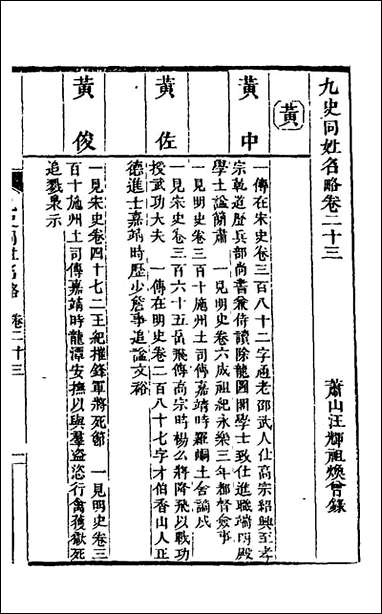 九史同姓名略卷二十三
蕭山汪輝祖煥曾錄
黃
黃中
一傳在宋史卷三百八十二字通老邵武人仕高宗紹興至孝
宗乾道歷兵部尚書兼侍讀除龍圖閣學士致仕進職端明殿
學士諡簡肅 一見明史卷六成祖紀永樂三年都督僉事
一見明史卷三百十施州土司傳嘉靖時羅峒土舍論戍
黃佐
一見宋史卷三百六十五岳飛傳高宗時楊么將降飛以戰功
授武功大夫 一傳在明史卷二百八十七字才伯香山人正
德進士嘉靖時歷少詹事追諡文裕
黃俊
一見宋史卷四十七二王紀摧鋒軍將死節 一見明史卷三
百十施州土司傳嘉靖時龍潭安撫以與羣盜恣行禽獲獄死
追戮梟示
九史同姓名略 卷二十三 一